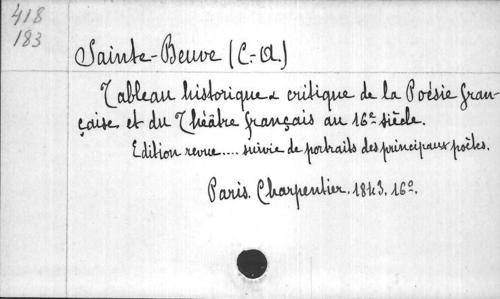 418
183
Sainte-Beuve (C.-A.)
Tableau historique & critique de la Poésie fran-
çaise et du Théâtre français au 16e siècle.
Edition revue.... suivie de portraits des principaux poètes.
Paris. Charpentier. 1843. 16o.